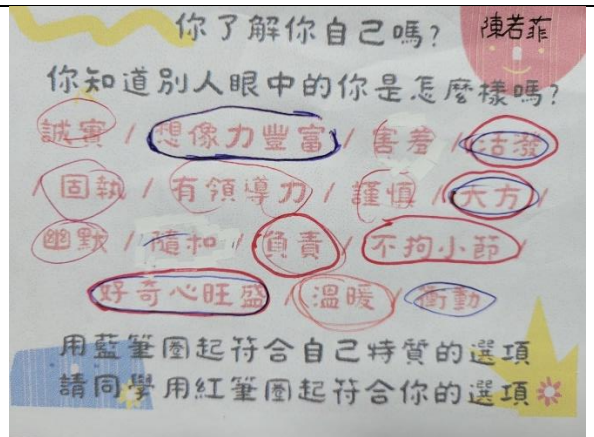 你了解你自己嗎? 陳若菲
你知道別人眼中的你是怎麼樣嗎?
誠實 / 想像力豐富 / 害羞 / 活潑
/ 固執 / 有領導力 / 謹慎 / 大方 /
幽默 / 隨和 / 負責 / 不拘小節 /
好奇心旺盛 / 溫暖 / 衝動
用藍筆圈起符合自己特質的選項
請同學用紅筆圈起符合你的選項